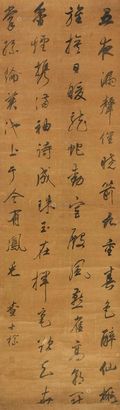 五夜漏聲催曉箭九重春色醉仙桃
旌旂日暖龍蛇動宮殿風微燕雀高朝罷
香煙攜滿袖詩成珠玉在揮毫欲知世
掌絲綸美池上于今有鳳毛 查士標